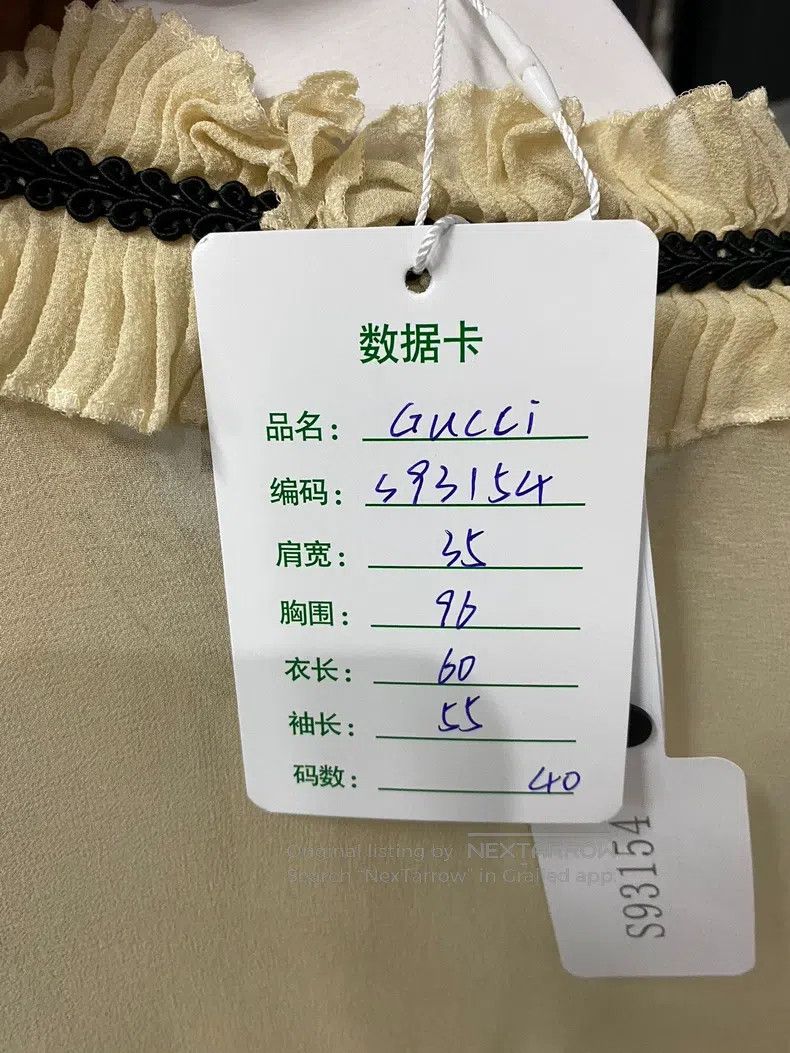 数据卡
品名: Gucci
编码: S93154
肩宽: 35
胸围: 96
衣长: 60
袖长: 55
码数: 40
Original listing by NEXTARROW
Search "NexTarrow" in Grailed app
S93154